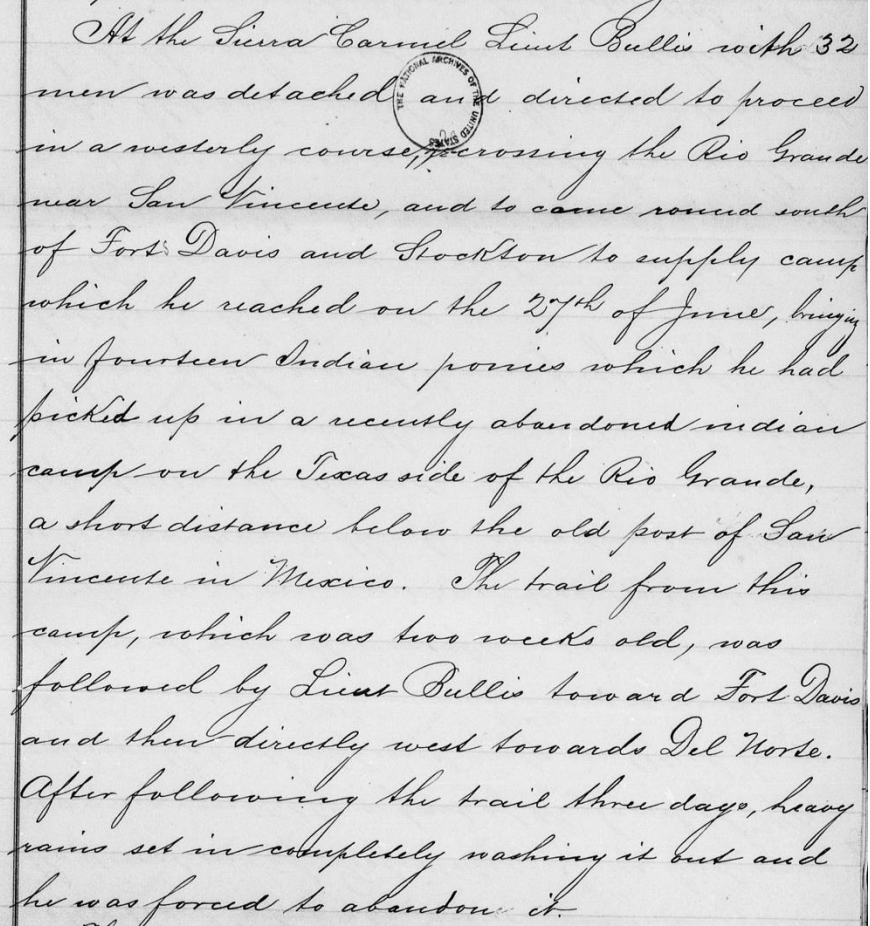 At the Sierra Carmel Lieut Bullis with 32
men was detached and directed to proceed
THE NATIONAL ARCHIVES OF THE UNITED STATES
in a westerly course, recrossing the Rio Grande
near San Vincente, and to come round south
of Forts Davis and Stockton to supply camp
which he reached on the 27th of June, bringing
in fourteen Indian ponies which he had
picked up in a recently abandoned indian
camp on the Texas side of the Rio Grande,
a short distance below the old post of San
Vincente in Mexico. The trail from this
camp, which was two weeks old, was
followed by Lieut Bullis toward Fort Davis
and then directly west towards Del Norte.
After following the trail three days, heavy
rains set in completely washing it out and
he was forced to abandon it.